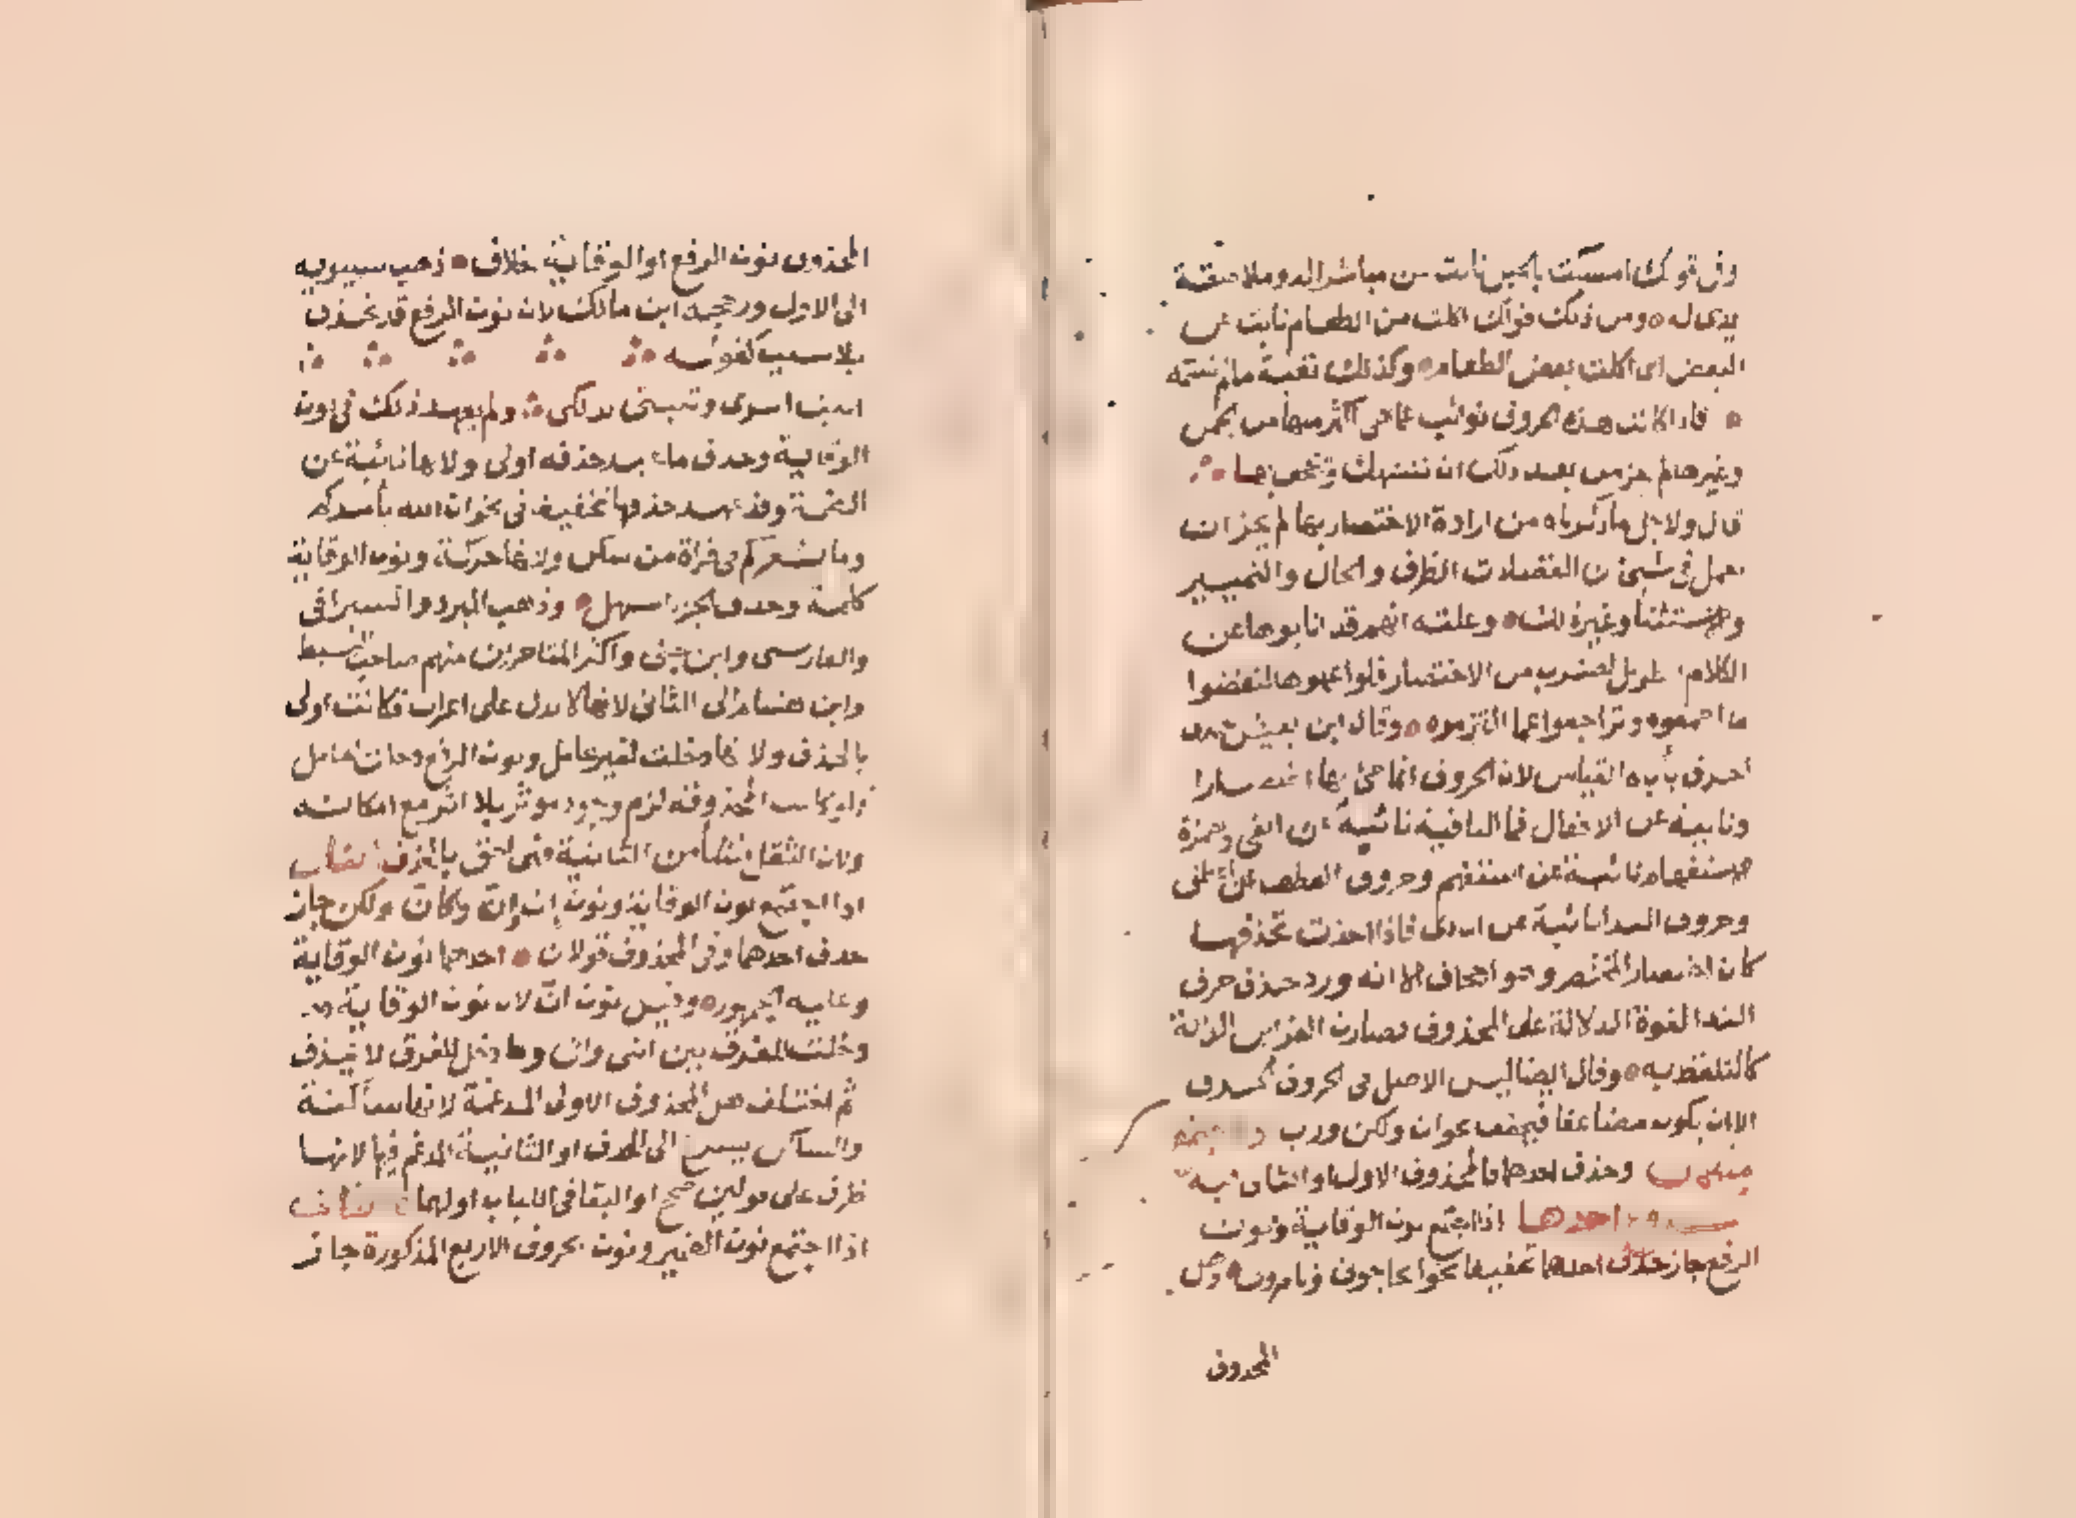 وفى قولك امسكت بالحبل نابت عن مباشرالده وملاصقته
يدى له ومن ذلك قولك اكلت من الطعام نابت عن
البعض اى اكلت بعض الطعام وكذلك بقية مالم نسمه
فاذا كانت هذه الحروف نوائب عما هى اكثر منها من الجمل
وغيرها لم يجز من بعد ذلك ان تنتهك وتجحف بها
قال ولاجل ماذكرناه من ارادة الاختصار بها لم يجز ان
تعمل فى شىء من الفضلات الظرف والحال والتمييز
والاستثنا وغير ذلك وعلته انهم قد انابوها عن
الكلام الطويل لضرب من الاختصار فلو اعملوها لنقضوا
ما اجمعوه وتراجعوا عما التزموه وقال ابن يعيش حذف
الحرف يأباه القياس لان الحروف انما جئ بها اختصارا
ونايبة عن الافعال فما النافية نائبة عن انفى وهمزة
الاستفهام نائبة عن استفهم وحروف العطف عن اعطف
وحروف الندا نائبة عن انادى فاذا اخذت تحذفها
كان اختصار المختصر وهو اجحاف الا انه ورد حذف حرف
الندا لقوة الدلالة على المحذوف فصارت القراين الدالة
كالتلفظ به وقال ايضا ليس الاصل فى الحروف الحذف
الا ان يكون مضاعفا فيخفف نحو ان ولكن ورب
وحذف احدهما فالمحذوف الاول او الثانى فيه
احدها اذا اجتمع نون الوقاية ونون
الرفع جاز حذف احدهما تخفيفا نحو اتحاجونى وتامرونى وهل
المحذوف
المحذوف نون الرفع او الوقاية خلاف ذهب سيبويه
الى الاول ورجحه ابن مالك لان نون الرفع قد تحذف
بلا سبب كقوله
ابيت اسرى وتبيتى تدلكى ولم يعهد ذلك فى نون
الوقاية وحذف ما عهد حذفه اولى ولانها نائبة عن
الضمة وقد عهد حذفها تخفيفا فى نحو ان الله يأمركم
وما يشعركم فى قراة من سكن ولانها حركة ونون الوقاية
كلمة وحذف الجزء اسهل وذهب المبرد والسيرافى
والفارسى وابن جنى واكثر المتاخرين منهم صاحب البسيط
وابن هشام الى الثانى لانها لا تدل على اعراب فكانت اولى
بالحذف ولانها دخلت لغير عامل ونون الرفع دخلت لعامل
فلو كانت المحذوفة لزم وجود موثر بلا اثر مع امكانه
ولان الثقل نشأ من الثانية فهى احق بالحذف الثانى
اذا اجتمع نون الوقاية ونون إن وأن وكأن ولكن جاز
حذف احدهما وفى المحذوف قولان احدهما نون الوقاية
وعليه الجمهور وقيل نون ان لان نون الوقاية
دخلت للفرق بين اننى وانى وما دخل للفرق لا يحذف
ثم اختلف هل المحذوف الاولى المدغمة لانها ساكنة
والساكن يسرع الى الحذف او الثانية المدغم فيها لانها
طرف على قولين صحح ابو البقا فى اللباب اولهما
اذا اجتمع نون الضمير ونون الحروف الاربع المذكورة جاز